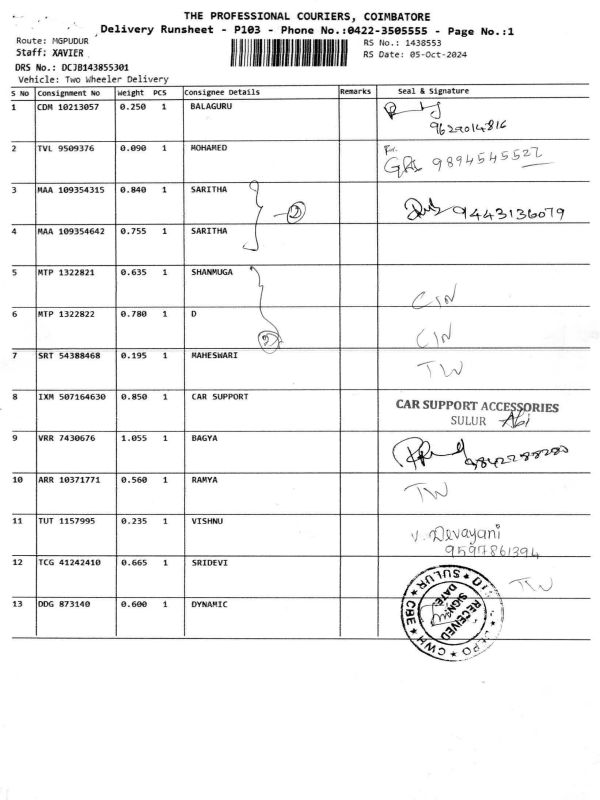 THE PROFESSIONAL COURIERS, COIMBATORE
Delivery Runsheet - P103 - Phone No.:0422-3505555 - Page No.:1
Route: MGPUDUR
RS No.: 1438553
Staff: XAVIER
RS Date: 05-Oct-2024
DRS No.: DCJB143855301
Vehicle: Two Wheeler Delivery
S No Consignment No Weight PCS Consignee Details Remarks Seal & Signature
1 CDM 10213057 0.250 1 BALAGURU
9629014816
2 TVL 9509376 0.090 1 MOHAMED
For
9894545522
3 MAA 109354315 0.840 1 SARITHA
② 9443136079
4 MAA 109354642 0.755 1 SARITHA
5 MTP 1322821 0.635 1 SHANMUGA
CIN
6 MTP 1322822 0.780 1 D
② CIN
7 SRT 54388468 0.195 1 MAHESWARI
TW
8 IXM 507164630 0.850 1 CAR SUPPORT
CAR SUPPORT ACCESSORIES
SULUR Abi
9 VRR 7430676 1.055 1 BAGYA
9842288280
10 ARR 10371771 0.560 1 RAMYA
TW
11 TUT 1157995 0.235 1 VISHNU
V. Devayani
9597861394
12 TCG 41242410 0.665 1 SRIDEVI
TW
13 DDG 873140 0.600 1 DYNAMIC
RECEIVED
SIGN
DATE
CWH ★ CBE ★ SULUR